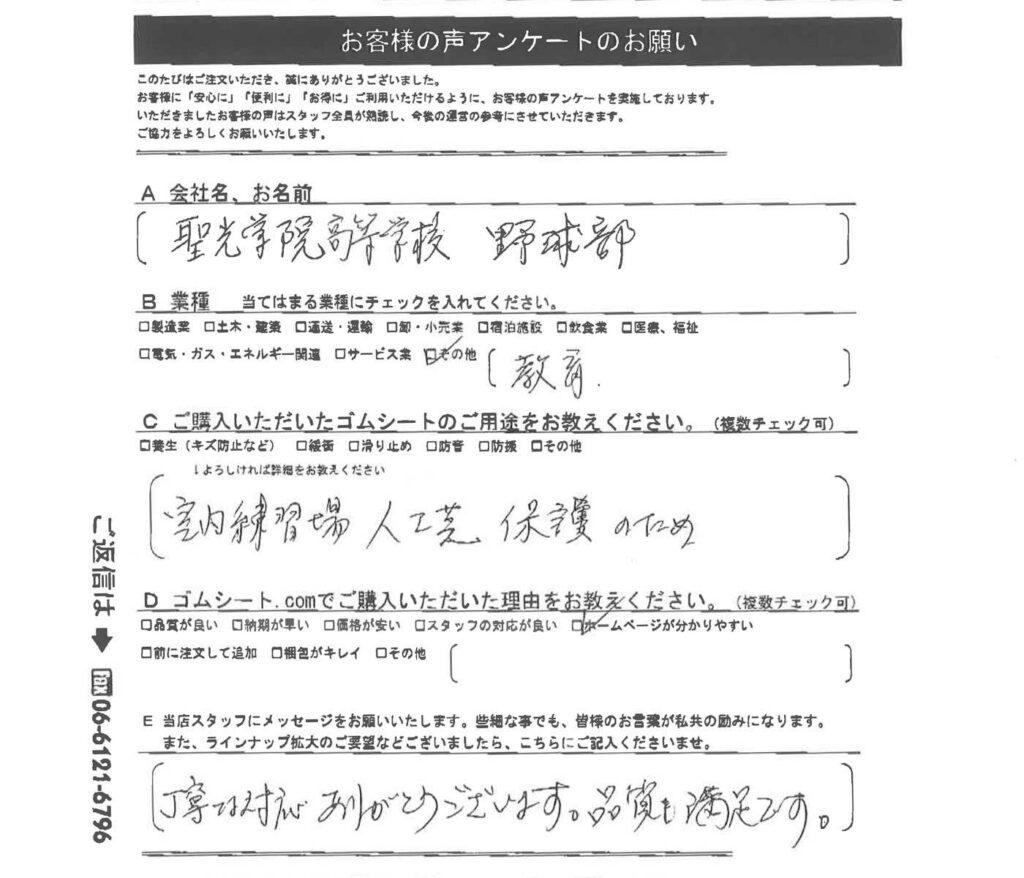 お客様の声アンケートのお願い
このたびはご注文いただき、誠にありがとうございました。
お客様に「安心に」「便利に」「お得に」ご利用いただけるように、お客様の声アンケートを実施しております。
いただきましたお客様の声はスタッフ全員が熟読し、今後の運営の参考にさせていただきます。
ご協力をよろしくお願いいたします。
A 会社名、お名前
聖光学院高等学校 野球部
B 業種 当てはまる業種にチェックを入れてください。
□製造業 □土木・建築 □運送・運輸 □卸・小売業 □宿泊施設 □飲食業 □医療、福祉
□電気・ガス・エネルギー関連 □サービス業 ☑その他 教育.
C ご購入いただいたゴムシートのご用途をお教えください。(複数チェック可)
□養生(キズ防止など) □緩衝 □滑り止め □防音 □防振 □その他
↓よろしければ詳細をお教えください
室内練習場 人工芝 保護 のため
D ゴムシート.comでご購入いただいた理由をお教えください。(複数チェック可)
□品質が良い □納期が早い □価格が安い □スタッフの対応が良い ☑ホームページが分かりやすい
□前に注文して追加 □梱包がキレイ □その他
E 当店スタッフにメッセージをお願いいたします。些細な事でも、皆様のお言葉が私共の励みになります。
また、ラインナップ拡大のご要望などございましたら、こちらにご記入くださいませ。
丁寧な対応 ありがとうございます。品質も満足です。
ご返信は ➡ fax 06-6121-6796